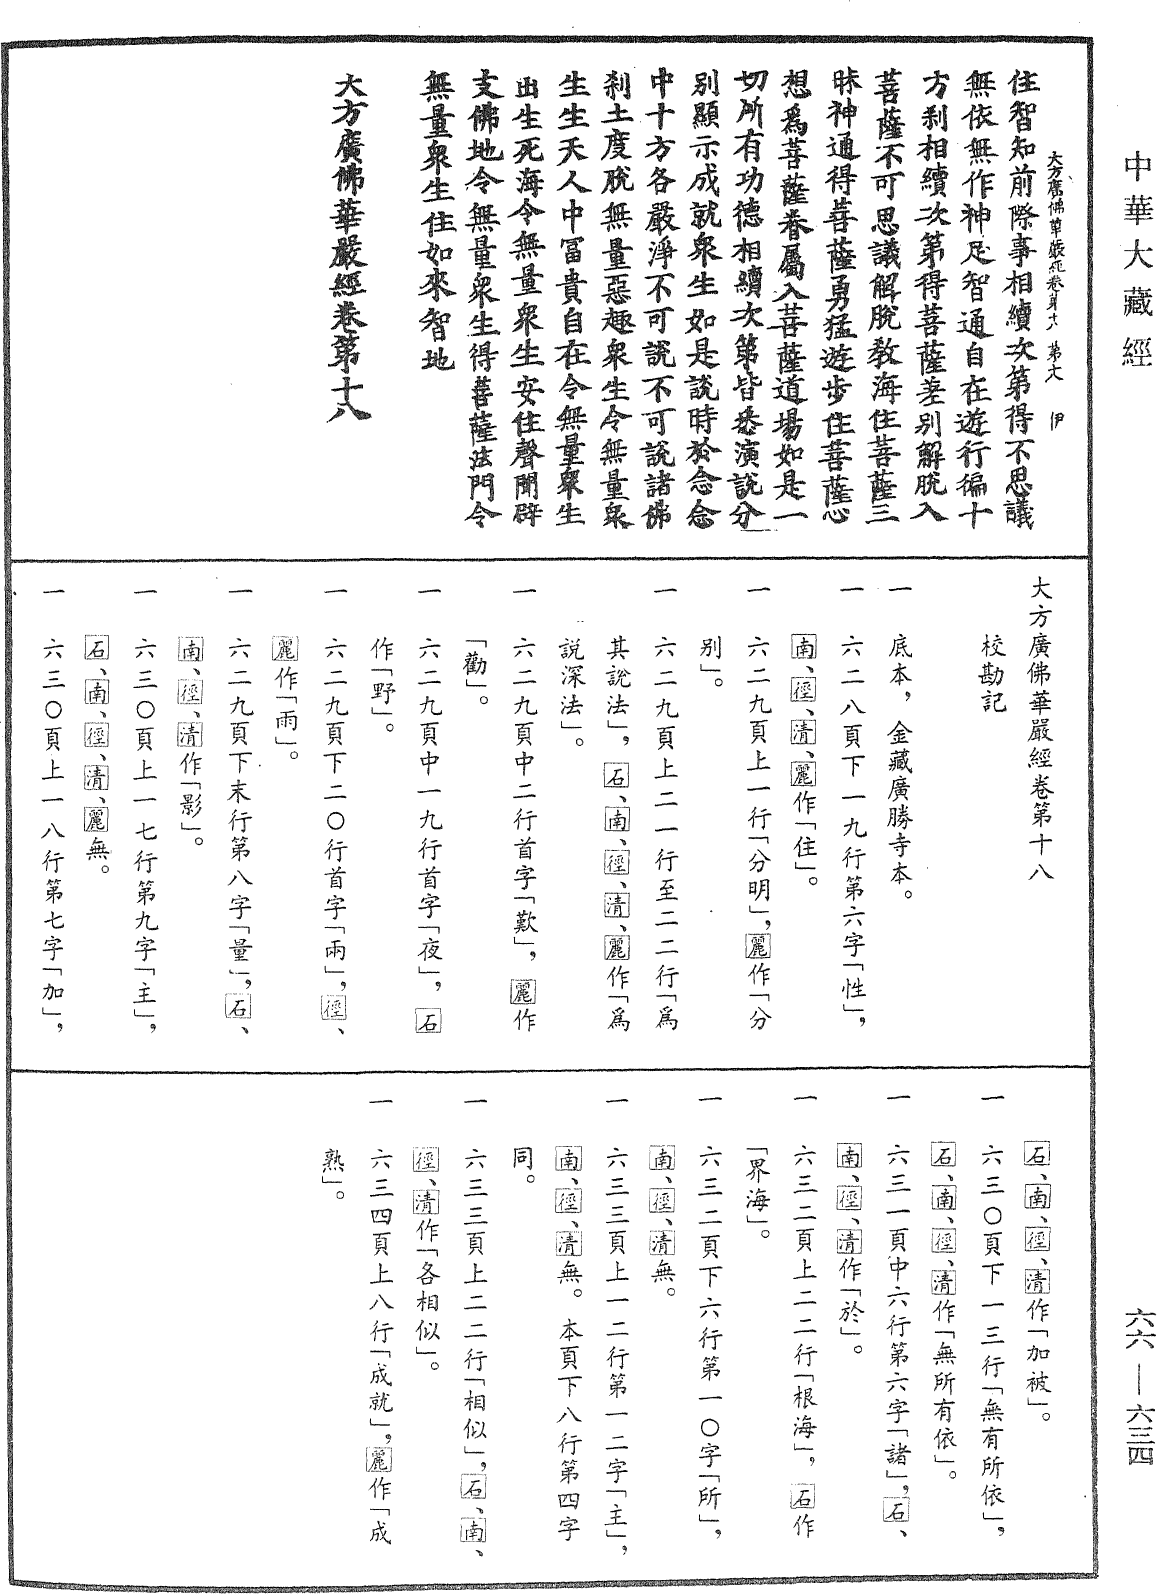 中華大藏經
住智知前際事相續次第得不思議
大方廣佛華嚴經卷第十八 第六 伊
無依無作神足智通自在遊行徧十
方刹相續次第得菩薩差别解脱入
菩薩不可思議解脱教海住菩薩三
昧神通得菩薩勇猛遊步住菩薩心
想爲菩薩眷屬入菩薩道場如是一
切所有功德相續次第皆悉演說分
别顯示成就衆生如是說時於念念
中十方各嚴淨不可說不可說諸佛
刹土度脱無量惡趣衆生令無量衆
生生天人中冨貴自在令無量衆生
出生死海令無量衆生安住聲聞辟
支佛地令無量衆生得菩薩法門令
無量衆生住如來智地
大方廣佛華嚴經卷第十八
大方廣佛華嚴經卷第十八
校勘記
一 底本，金藏廣勝寺本。
一 六二八頁下一九行第六字「性」，
南、徑、清、麗作「住」。
一 六二九頁上一行「分明」，麗作「分
别」。
一 六二九頁上二一行至二二行「爲
其說法」，石、南、徑、清、麗作「爲
說深法」。
一 六二九頁中二行首字「歎」，麗作
「勸」。
一 六二九頁中一九行首字「夜」，石
作「野」。
一 六二九頁下二〇行首字「兩」，徑、
麗作「雨」。
一 六二九頁下末行第八字「量」，石、
南、徑、清作「影」。
一 六三〇頁上一七行第九字「主」，
石、南、徑、清、麗無。
一 六三〇頁上一八行第七字「加」，
石、南、徑、清作「加被」。
一 六三〇頁下一三行「無有所依」，
石、南、徑、清作「無所有依」。
一 六三一頁中六行第六字「諸」，石、
南、徑、清作「於」。
一 六三二頁上二二行「根海」，石作
「界海」。
一 六三二頁下六行第一〇字「所」，
南、徑、清無。
一 六三三頁上一二行第一二字「主」，
南、徑、清無。本頁下八行第四字
同。
一 六三三頁上二二行「相似」，石、南、
徑、清作「各相似」。
一 六三四頁上八行「成就」，麗作「成
熟」。
六六—六三四